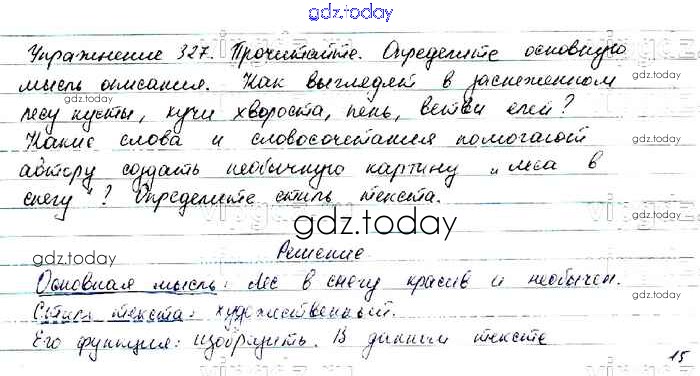 gdz.today
Упражнение 327. Прочитайте. Определите основную
мысль описания. Как выглядят в заснеженном
gdz.today
gdz.today
лесу кусты, кучи хвороста, пень, ветви елей?
Какие слова и словосочетания помогают
автору создать необычную картину „леса в
gdz.today
снегу"? Определите стиль текста.
gdz.today
gdz.today
Решение
Основная мысль: лес в снегу красив и необычен.
gdz.today
Стиль текста: художественный.
Его функция: изобразить. В данном тексте
15